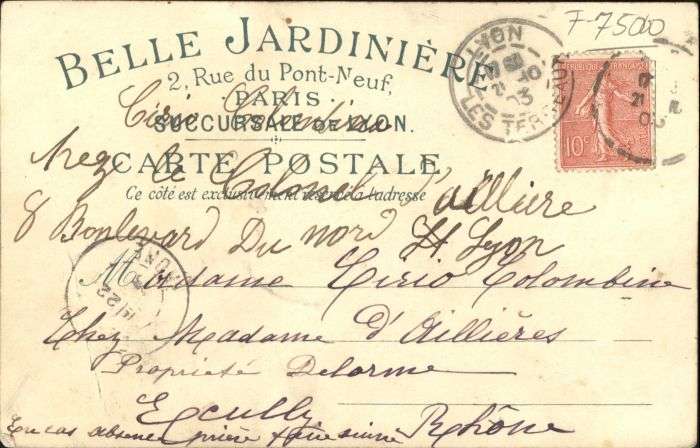 F-7500
BELLE JARDINIÈRE
2, Rue du Pont-Neuf,
PARIS
SUCCURSALE DE LYON.
CARTE POSTALE
Ce côté est exclusivement réservé à l'adresse
LYON
LES TERREAUX
RÉPUBLIQUE FRANÇAISE
10c
Cirio Colombine
chez le Colonel d'aillière
8 Boulevard Du nord Lyon
Madame Cirio Colombine
Chez Madame D'Aillières
Propriété Delorme
Ecully
Rhône
En cas absence prière faire suivre